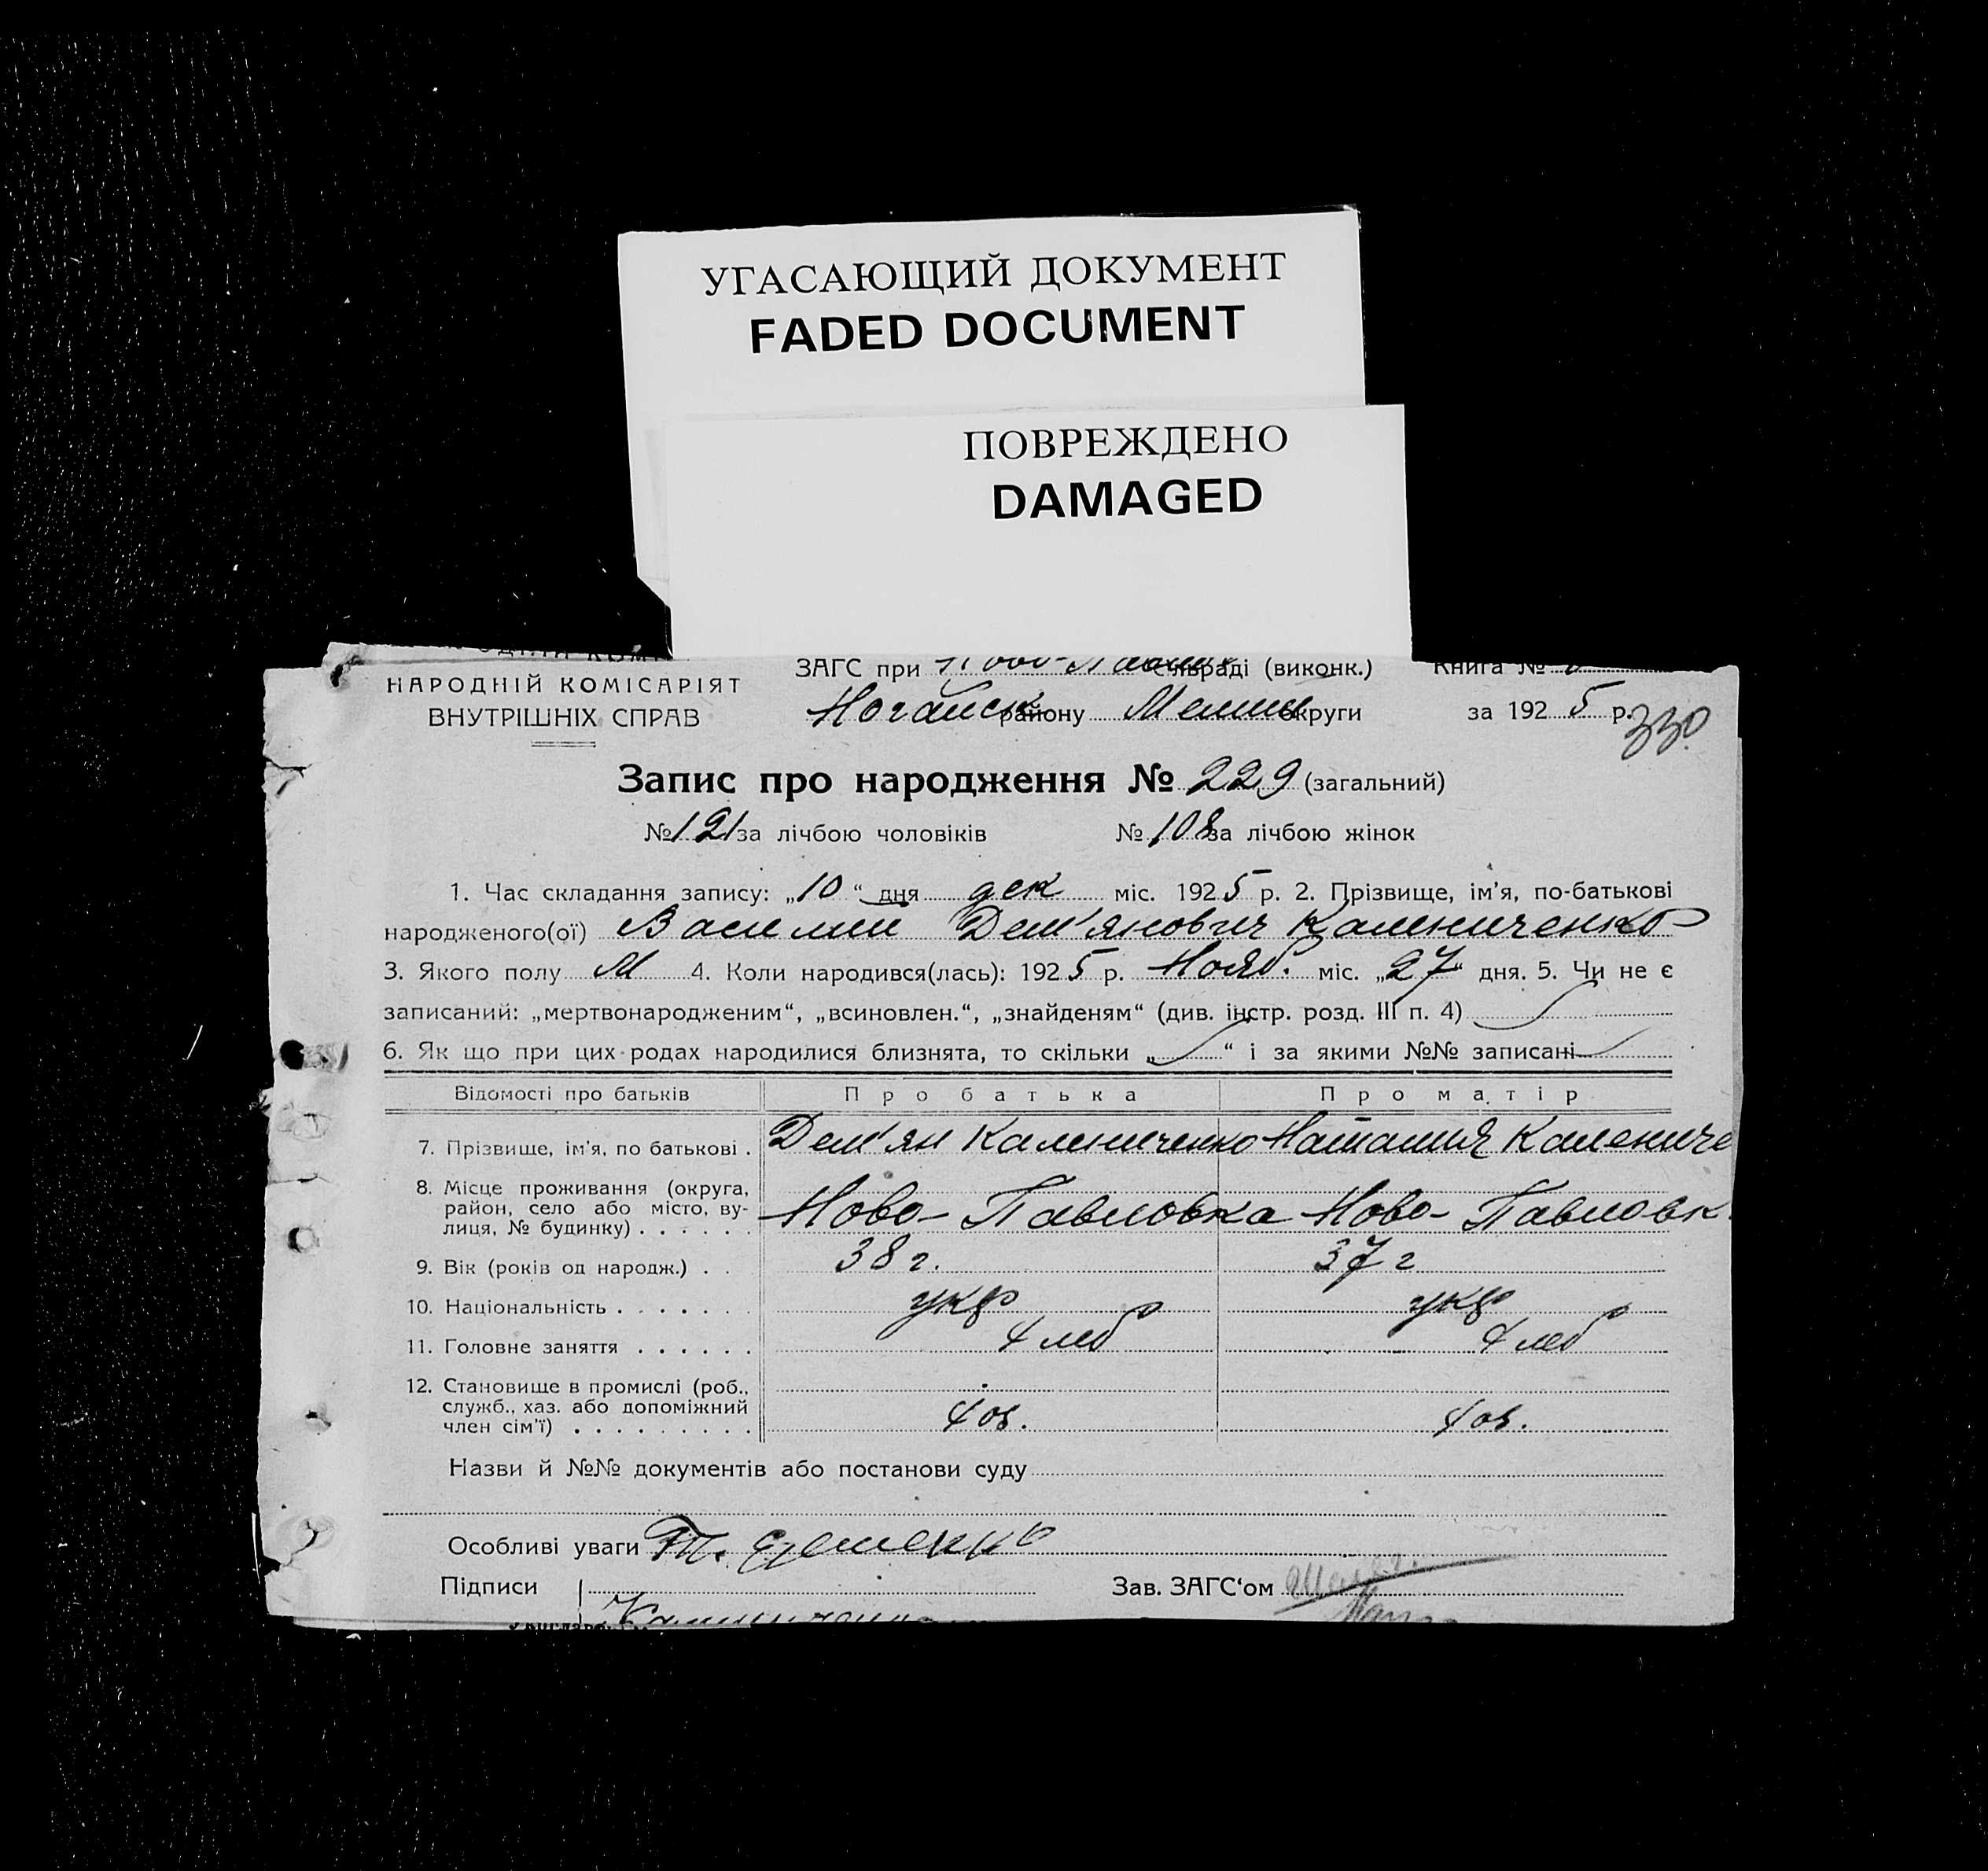 УГАСАЮЩИЙ ДОКУМЕНТ
FADED DOCUMENT
ПОВРЕЖДЕНО
DAMAGED
НАРОДНІЙ КОМІСАРІЯТ
ВНУТРІШНІХ СПРАВ
ЗАГС при Ново-Павл сільраді (виконк.) Книга №
Ногайськ району Мелит округи за 1925 р.
330
Запис про народження № 229 (загальний)
№ 121 за лічбою чоловіків № 108 за лічбою жінок
1. Час складання запису: „10“ дня дек міс. 1925 р. 2. Прізвище, ім'я, по-батькові
народженого(ої) Василий Дем'янович Калениченко
3. Якого полу М 4. Коли народився(лась): 1925 р. Нояб. міс. „27“ дня. 5. Чи не є
записаний: „мертвонародженим“, „всиновлен.“, „знайденям“ (див. інстр. розд. III п. 4)
6. Як що при цих родах народилися близнята, то скільки „ “ і за якими №№ записані
Відомості про батьків Про батька Про матір
7. Прізвище, ім'я, по батькові . Дем'ян Калениченко Наталия Калениче
8. Місце проживання (округа,
район, село або місто, ву-
лиця, № будинку) . . . . . . Ново-Павловка Ново-Павловк
9. Вік (років од народж.) . . 38 г. 37 г
10. Національність . . . . . . . укр укр
11. Головне заняття . . . . . . хлеб хлеб
12. Становище в промислі (роб.,
служб., хаз. або допоміжний
член сім'ї) . . . . . . . . .
Назви й №№ документів або постанови суду
Особливі уваги
Підписи Зав. ЗАГС'ом